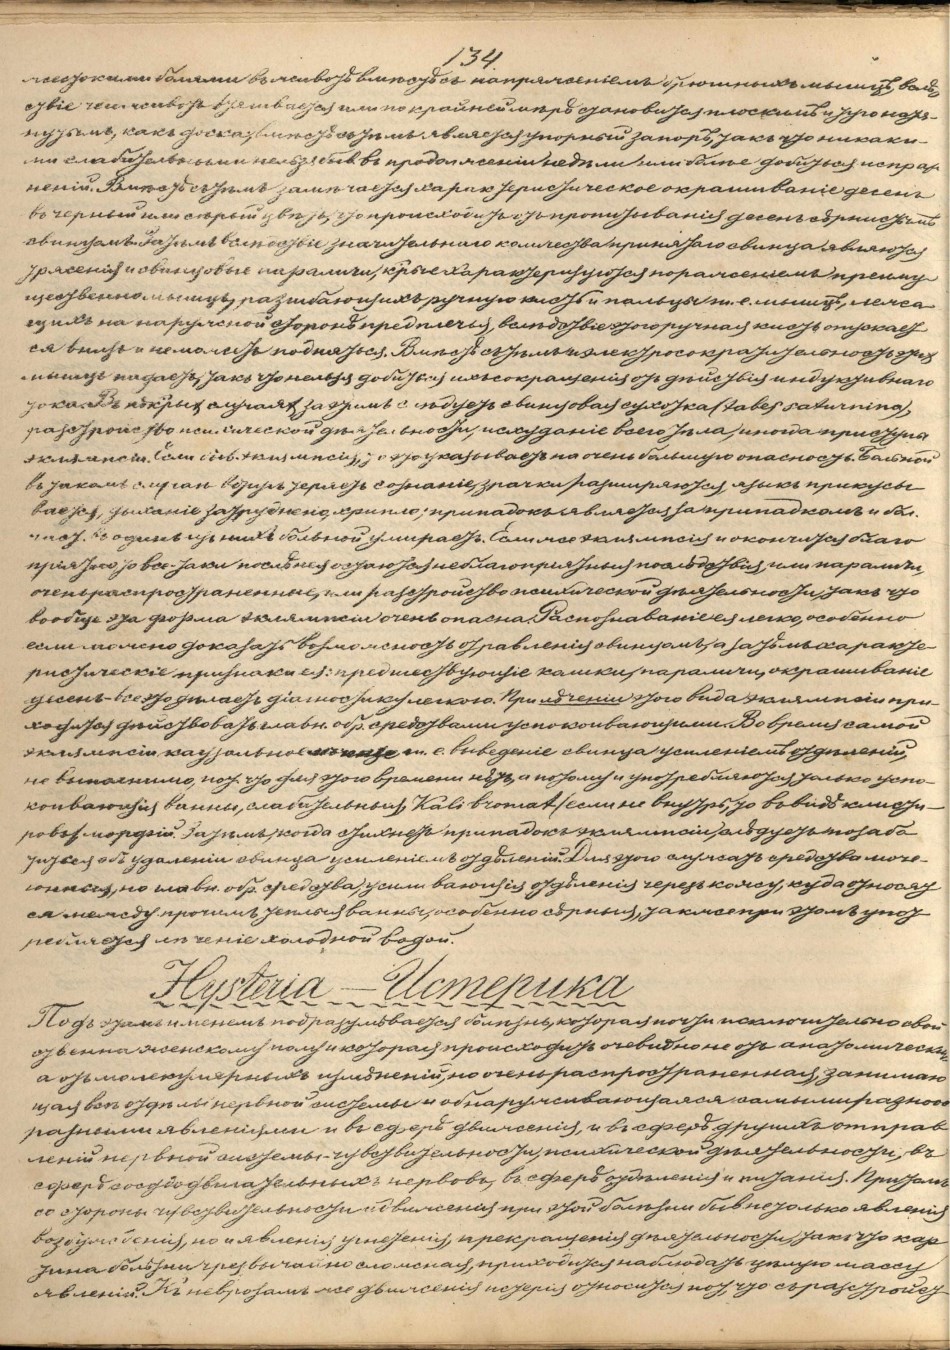 134
жестокими болями въ животѣ вмѣстѣ съ напряженіемъ брюшныхъ мышцъ, вслѣд
ствіе чего животъ втягивается или по крайней мѣрѣ становится плоскимъ и
какъ доска; вмѣстѣ съ тѣмъ является упорный запоръ, такъ что никаки-
ми слабительными нельзя быв. въ продолженіи недѣли или болѣе добиться испраж
неній. Вмѣстѣ съ тѣмъ замѣчается характеристическое окрашиваніе десенъ
въ черный или сѣрый цвѣтъ, что происходитъ отъ пропитыванія десенъ сѣрнистымъ
свинцомъ. Затѣмъ вслѣдствіе значительнаго количества принятаго свинца являются
трясенія и свинцовые параличи, кᵗᵒрые характеризуются пораженіемъ преиму
щественно мышцъ, разгибающихъ ручную кисть и пальцы, т. е. мышцъ, лежа
щихъ на наружной сторонѣ предплечья, вслѣдствіе этого ручная кисть опускает
ся внизъ и не можетъ подняться. Вмѣстѣ съ тѣмъ и электросократительность этих
мышцъ падаетъ, такъ что нельзя добиться ихъ сокращенія отъ дѣйствія индуктивнаго
тока. Въ нѣкрых случаях за этимъ слѣдуетъ свинцовая сухотка (tabes saturnina),
разстройство психической дѣятельности, исхуданіе всего тѣла, иногда приступы
эклямпсіи. Если быв. эклямпсія, то это указываетъ на очень большую опасность. Больной
въ такомъ случаѣ вдругъ теряетъ сознаніе, зрачки расширяются, языкъ прикусы
вается, дыханіе затруднено, хрипло; припадокъ является за припадкомъ и бол.
въ одинъ изъ нихъ больной умираетъ. Если же эклямпсія и окончится благо
пріятно, то все-таки послѣ нея остаются неблагопріятныя послѣдствія, или параличи,
очень распространенные, или разстройство психической дѣятельности, такъ что
вообще эта форма эклямпсіи очень опасна. Распознаваніе ея легко, особенно
если можно доказать возможность отравленія свинцомъ, а затѣмъ характе-
ристическіе признаки ея: предшествующіе колики, параличи, окрашиваніе
десенъ - все это дѣлаетъ діагностику легкою. При лѣченіи этого вида эклямпсіи при-
ходится дѣйствовать главн. обр. средствами успокоивающими. Во время самой
эклямпсіи каузальное т. е. выведеніе свинца усиленіемъ отдѣленій,
не выполнимо, пот. что для этого времени нѣтъ, а потому и употребляются только успо-
коивающія ванны, слабительныя, Kali bromat. (если не внутрь, то въ видѣ клисти-
ровъ) морфій. Затѣмъ, когда стихнетъ припадокъ эклямпсіи, слѣдуетъ позабо
титься объ удаленіи свинца усиленіемъ отдѣленій. Для этого служатъ средства моче-
гонныя, но главн. обр. средства, усиливающія отдѣленія черезъ кожу, куда относят
ся между прочимъ теплыя ванны, особенно сѣрныя, также при этомъ упот
ребляется лѣченіе холодной водой.
Hysteria — Истерика
Подъ этимъ именемъ подразумѣвается болѣзнь, которая почти исключительно свой
ственна женскому полу и которая происходитъ очевидно не отъ анатомическихъ
а отъ молекулярныхъ измѣненій, но очень распространенная, занимаю
щая всѣ отдѣлы нервной системы и обнаруживающаяся самыми разнооб
разными явленіями и въ сферѣ движенія, и въ сферѣ другихъ отправ
леній нервной системы - чувствительности, психической дѣятельности, въ
сферѣ сосудодвигательныхъ нервовъ, въ сферѣ отдѣленія и питанія. При томъ
со стороны чувствительности и движенія при этой болѣзни быв. не только явленія
возбужденія, но и явленія угнетенія, прекращенія дѣятельности, такъ что кар
тина болѣзни чрезвычайно сложная, приходится наблюдать цѣлую массу
явленій. Къ неврозамъ же движенія истерія относится пот. что съ разстройст